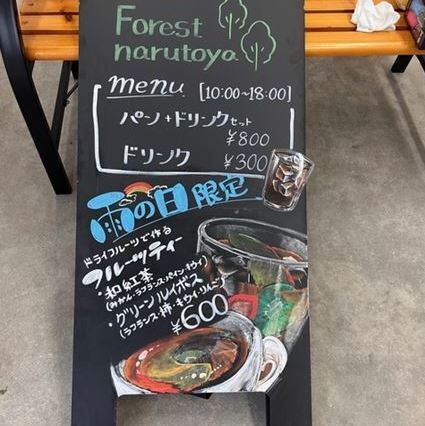 Forest
narutoya
menu [10:00~18:00]
パン+ドリンクセット
¥800
ドリンク ¥300
雨の日限定
ドライフルーツで作る
フルーツティー
・和紅茶
(みかん・ラフランス・パイン・キウイ)
・グリーンルイボス
(ラフランス・柿・キウイ・りんご)
¥600